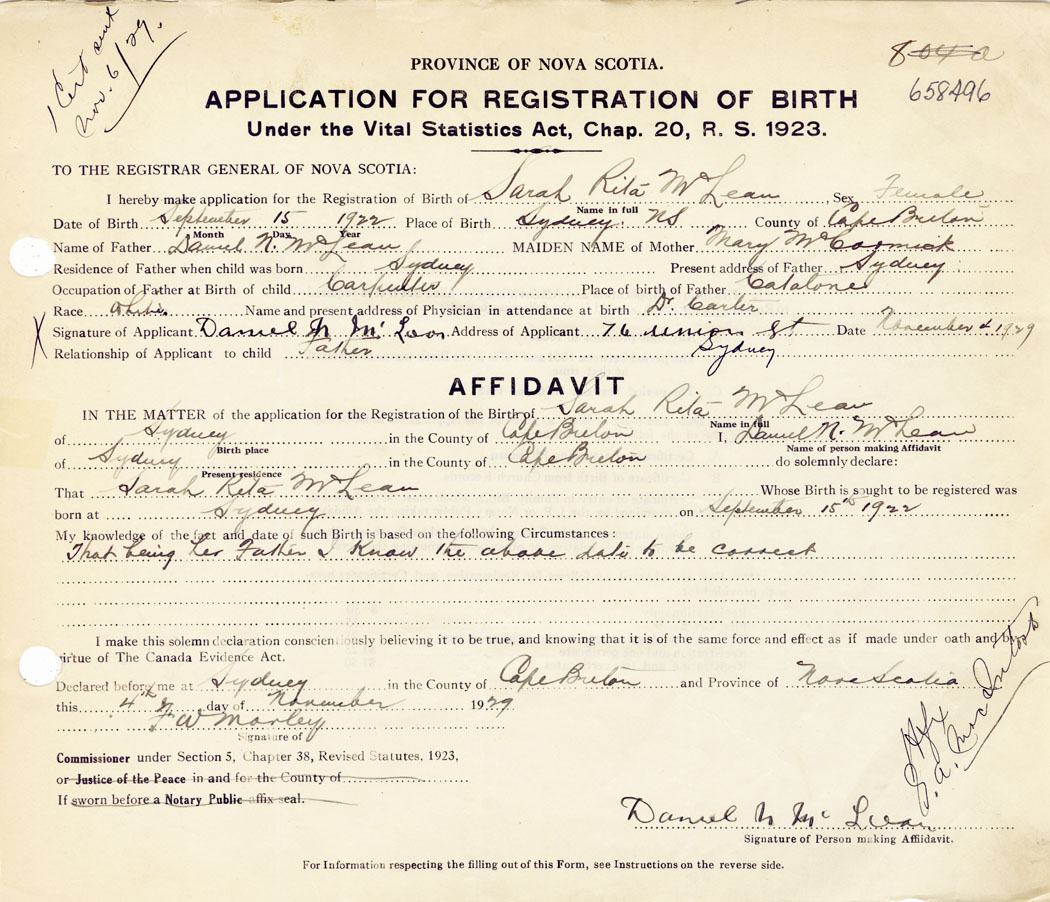 1 Cert sent
Nov. 6/29.
658496
PROVINCE OF NOVA SCOTIA.
APPLICATION FOR REGISTRATION OF BIRTH
Under the Vital Statistics Act, Chap. 20, R. S. 1923.
TO THE REGISTRAR GENERAL OF NOVA SCOTIA:
I hereby make application for the Registration of Birth of Sarah Rita McLean Sex Female
Name in full
Date of Birth September 15 1922 Place of Birth Sydney NS County of Cape Breton
Month Day Year
Name of Father Daniel N. McLean MAIDEN NAME of Mother Mary McCormick
Residence of Father when child was born Sydney Present address of Father Sydney
Occupation of Father at Birth of child Carpenter Place of birth of Father Catalone
Race white Name and present address of Physician in attendance at birth Dr. Carter
X Signature of Applicant Daniel N McLean Address of Applicant 76 Union St Date November 4 1929
Relationship of Applicant to child Father Sydney
AFFIDAVIT
IN THE MATTER of the application for the Registration of the Birth of Sarah Rita McLean
Name in full
of Sydney in the County of Cape Breton I, Daniel N. McLean
Birth place Name of person making Affidavit
of Sydney in the County of Cape Breton do solemnly declare:
Present residence
That Sarah Rita McLean Whose Birth is sought to be registered was
born at Sydney on September 15th 1922
My knowledge of the fact and date of such Birth is based on the following Circumstances:
That being her Father I Know the above date to be correct
I make this solemn declaration conscientiously believing it to be true, and knowing that it is of the same force and effect as if made under oath and by
virtue of The Canada Evidence Act.
Declared before me at Sydney in the County of Cape Breton and Province of Nova Scotia
this 4th day of November 1929
F W Morley
Signature of
Commissioner under Section 5, Chapter 38, Revised Statutes, 1923,
or Justice of the Peace in and for the County of
If sworn before a Notary Public affix seal.
Hfx
MacIntosh
Daniel N McLean
Signature of Person making Affidavit.
For Information respecting the filling out of this Form, see Instructions on the reverse side.